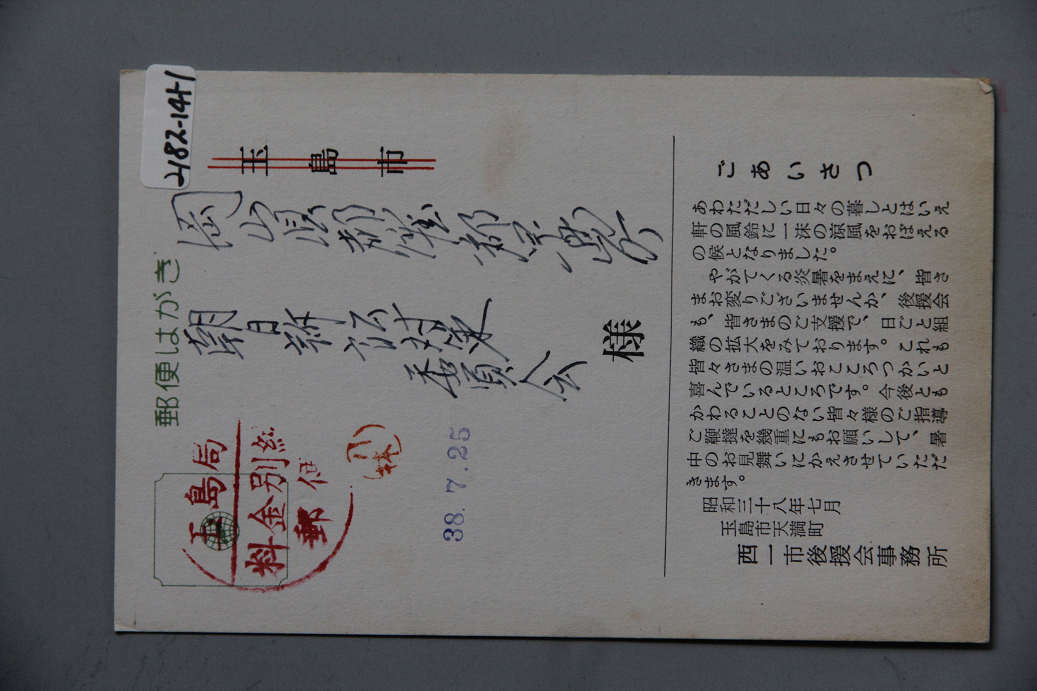 2182-14-1
郵便はがき
玉島市
岡山県都窪郡
朝日訴訟対策
委員会
様
玉島局
料金別納
郵便
小林
38.7.25
ごあいさつ
あわただしい日々の暮しとはいえ
軒の風鈴に一沫の涼風をおぼえる
の候となりました。
やがてくる炎暑をまえに、皆さ
まお変りございませんか、後援会
も、皆さまのご支援で、日ごと組
織の拡大をみております。これも
皆々さまの温いおこころづかいと
喜んでいるところです。今後とも
かわることのない皆々様のご指導
ご鞭撻を幾重にもお願いして、暑
中のお見舞いにかえさせていただ
きます。
昭和三十八年七月
玉島市天満町
西一市後援会事務所